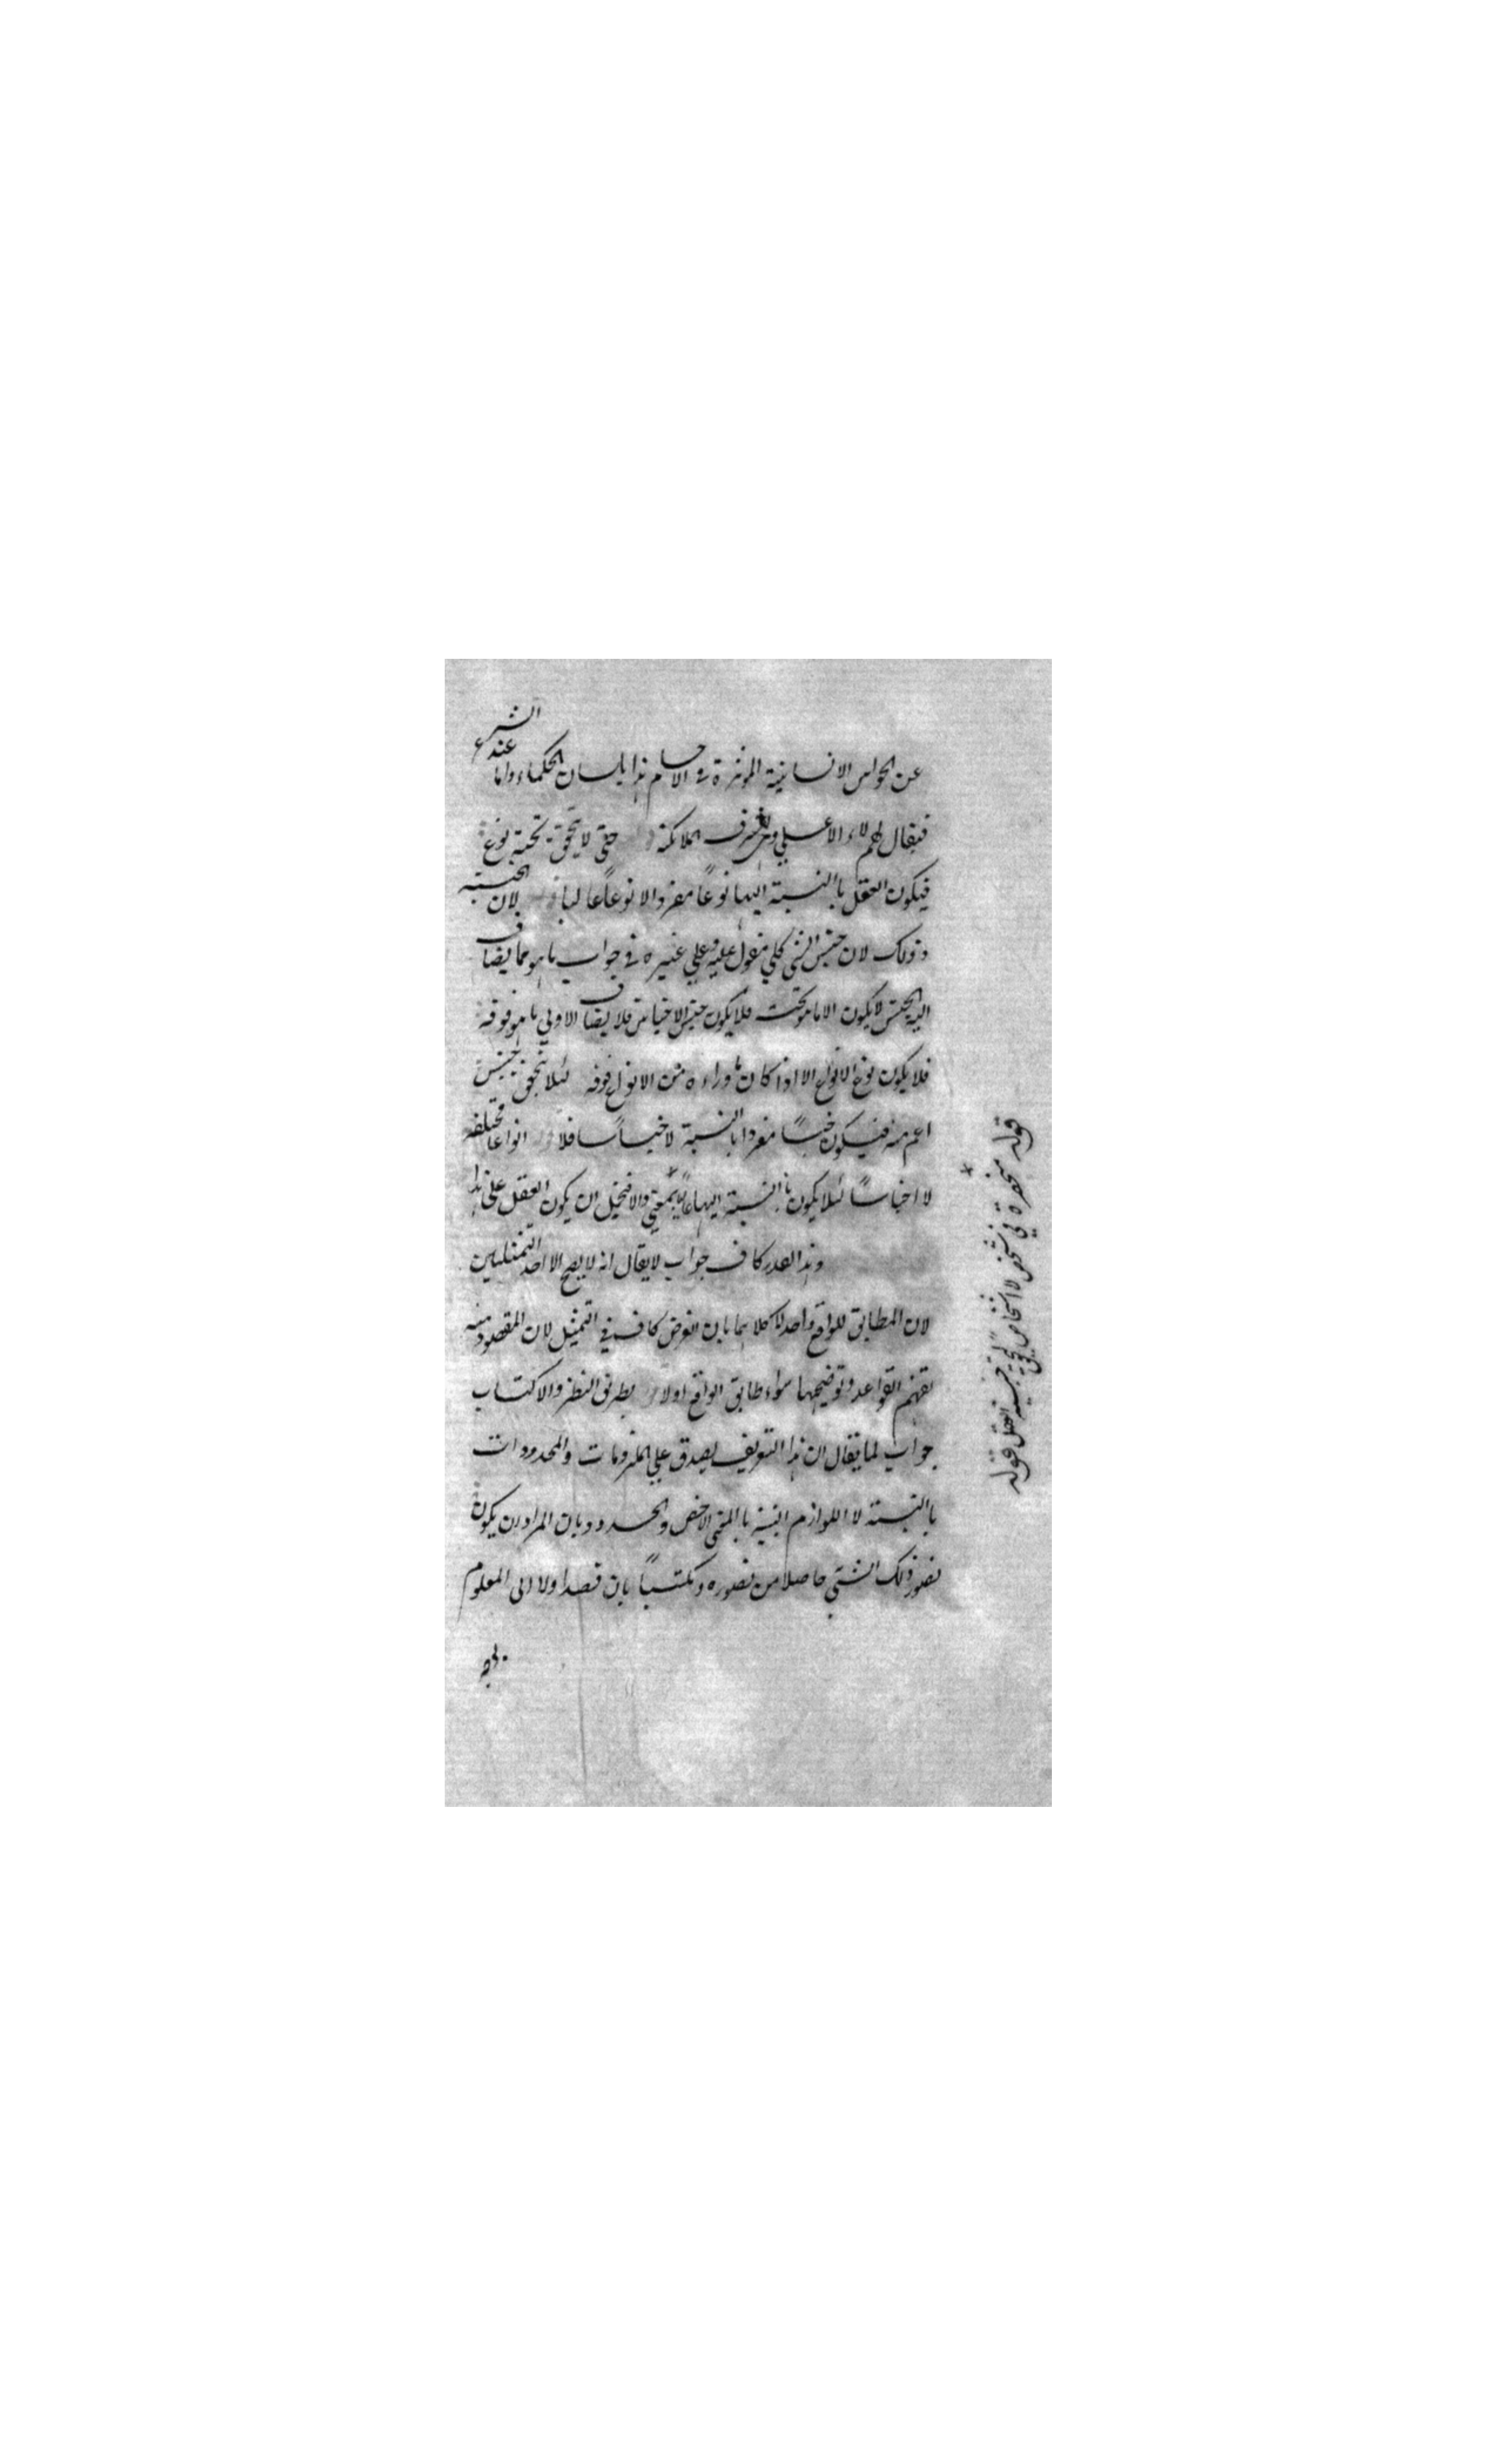 عن الحواس الانسانية المؤثرة في الاجسام هذا بلسان الحكماء واما عند الشرع
فيقال لهم الاعلي واشرف الملائكة حتى لا يتحقق تحته نوع
فيكون العقل بالنسبة اليها نوعًا مفردا لا نوعًا عاليا لان الجنسية
وذلك لان جنس الشي كلي مقول عليه وعلي غيره في جواب ما هو مما يضاف
اليه الجنس لا يكون الا ما هو تحت فلا يكون جنس الاجناس فلا يضاف الا ولي ما هو فوقه
فلا يكون نوع الانواع الا اذا كان ما وراءه من الانواع فوقه لئلا يتحقق جنس
اعم منه فيكون جنسًا مفردا بالنسبة لا جنسًا سافلا انواعا مختلفه
لا اجناسًا لئلا يكون بالنسبة اليها عاليًا بمعني والا فتخيل ان يكون العقل علي هذا
وهذا القدر كاف جواب لا يقال انه لا يصح الا احد التمثيلين
لان المطابق للواقع واحد لا كلاهما بان الفرض كاف في التمثيل لان المقصود منه
تفهيم القواعد وتوضيحها سواء طابق الواقع اولا بطريق النظر والاكتساب
جواب لما يقال ان هذا التعريف يصدق علي الملزومات والمحدودات
بالنسبة لا اللوازم البينة بالمعني الاخص والحدود بان المراد ان يكون
تصور ذلك الشي حاصلا من تصوره ومكتسبًا بان قصد اولا الى المعلوم
بوجه
قوله منحصرة في شخص لا اشخاص لجنسية العقل قوله